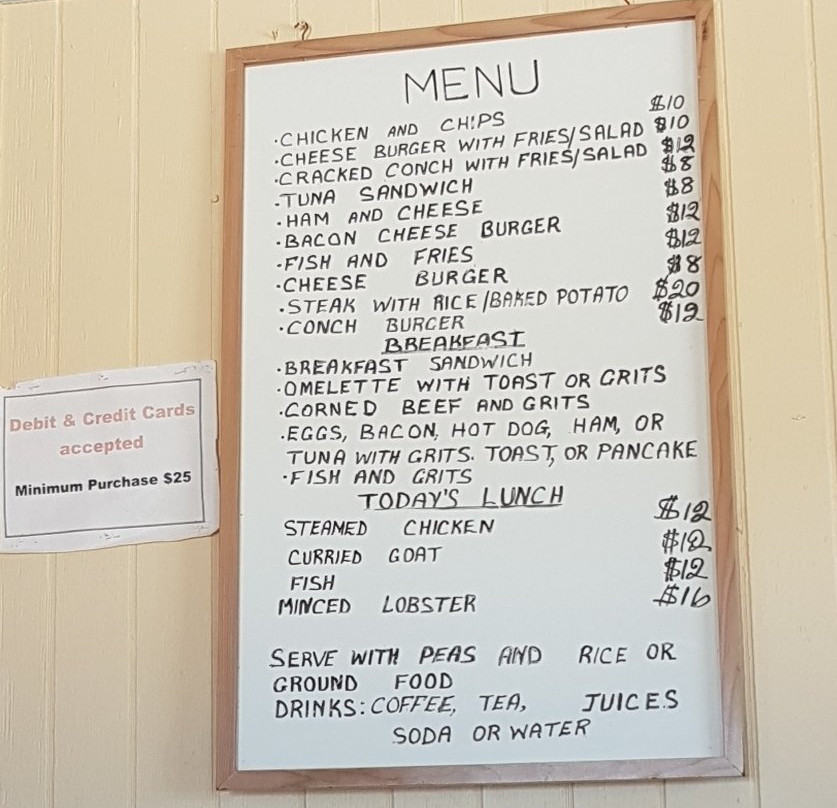 MENU
·CHICKEN AND CHIPS $10
·CHEESE BURGER WITH FRIES/SALAD $10
·CRACKED CONCH WITH FRIES/SALAD $12
·TUNA SANDWICH $8
·HAM AND CHEESE $8
·BACON CHEESE BURGER $12
·FISH AND FRIES $12
·CHEESE BURGER $8
·STEAK WITH RICE/BAKED POTATO $20
·CONCH BURGER $12
BREAKFAST
·BREAKFAST SANDWICH
·OMELETTE WITH TOAST OR GRITS
·CORNED BEEF AND GRITS
·EGGS, BACON, HOT DOG, HAM, OR
TUNA WITH GRITS. TOAST, OR PANCAKE
·FISH AND GRITS
TODAY'S LUNCH
STEAMED CHICKEN $12
CURRIED GOAT $12
FISH $12
MINCED LOBSTER $16
SERVE WITH PEAS AND RICE OR
GROUND FOOD
DRINKS: COFFEE, TEA, JUICES
SODA OR WATER
Debit & Credit Cards
accepted
Minimum Purchase $25